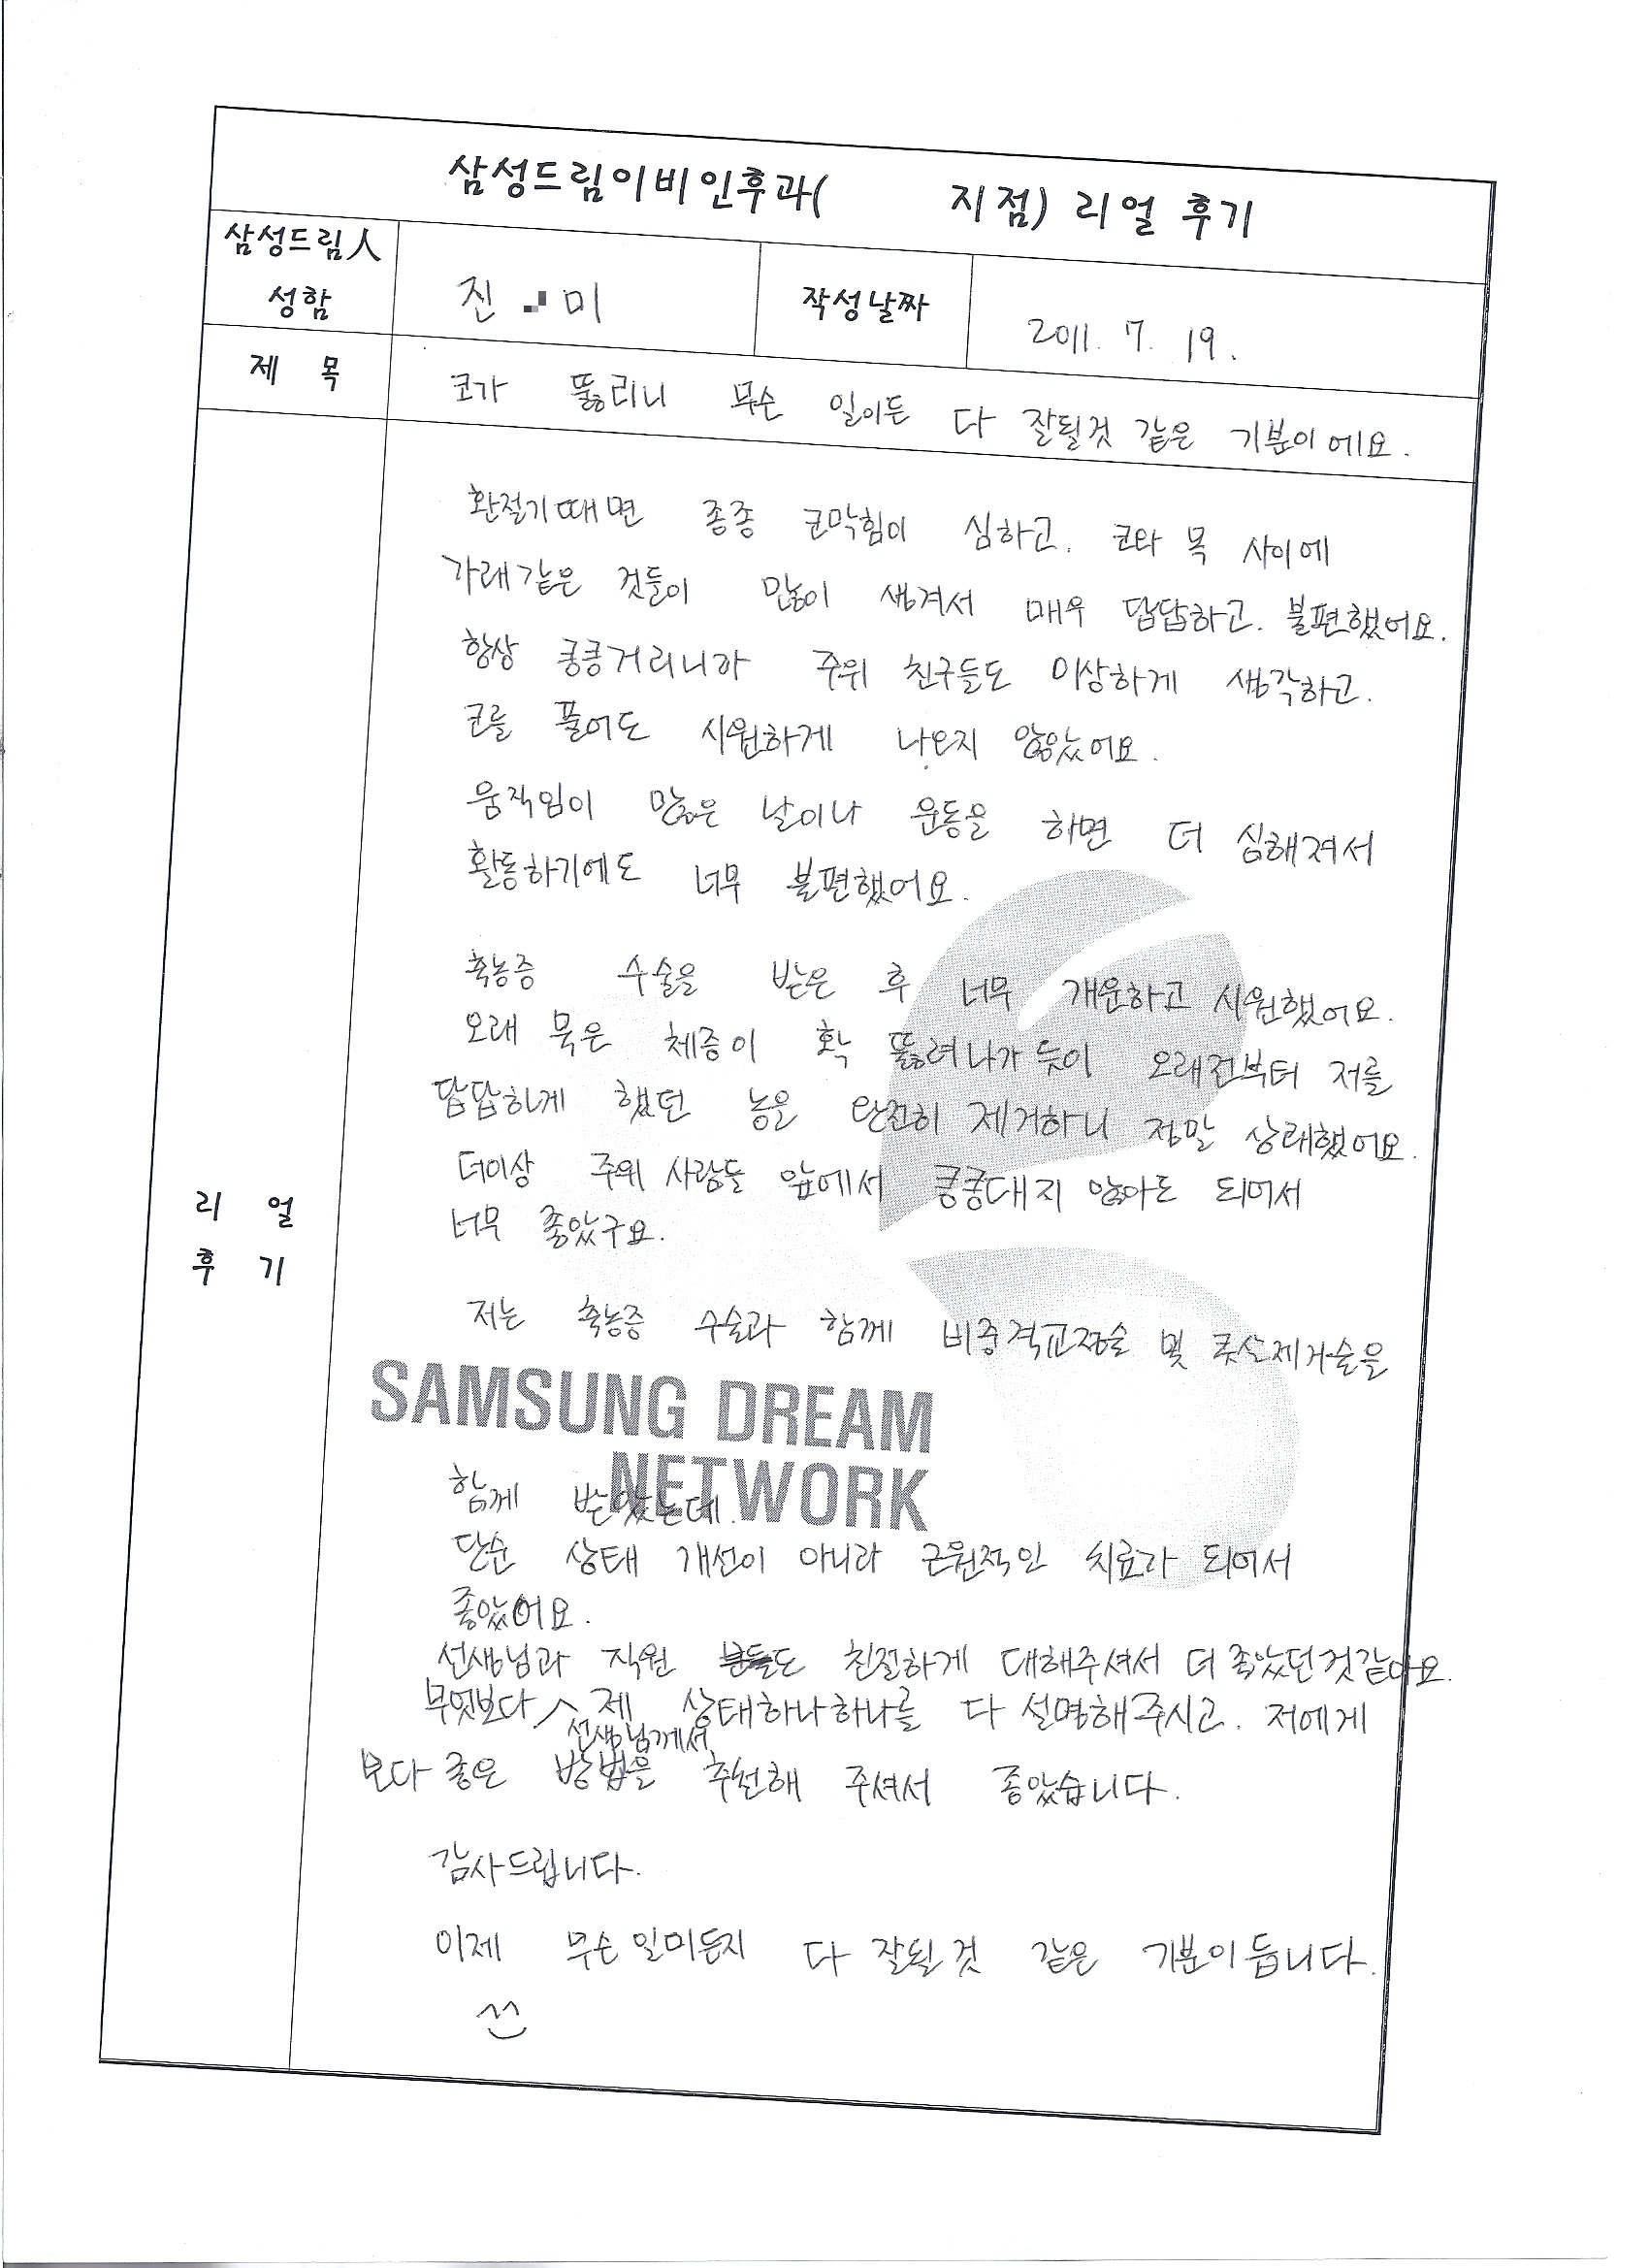 삼성드림이비인후과( 지점) 리얼 후기
삼성드림人
성함
진 미
작성날짜
2011. 7. 19.
제 목
코가 뚫리니 무슨 일이든 다 잘될것 같은 기분이에요.
환절기때면 종종 코막힘이 심하고. 코와 목 사이에
가래같은 것들이 많이 생겨서 매우 답답하고. 불편했어요.
항상 킁킁거리니까 주위 친구들도 이상하게 생각하고.
코를 풀어도 시원하게 나오지 않았어요.
움직임이 많은 날이나 운동을 하면 더 심해져서
활동하기에도 너무 불편했어요.
축농증 수술을 받은 후 너무 개운하고 시원했어요.
오래 묵은 체증이 확 뚫려나가듯이 오래전부터 저를
답답하게 했던 농을 완전히 제거하니 정말 상쾌했어요.
더이상 주위 사람들 앞에서 킁킁대지 않아도 되어서
너무 좋았구요.
리 얼
후 기
저는 축농증 수술과 함께 비중격교정술 및 제거술을
SAMSUNG DREAM
NETWORK
함께 받았는데.
단순 상태 개선이 아니라 근원적인 치료가 되어서
좋았어요.
선생님과 직원 분들도 친절하게 대해주셔서 더 좋았던것같아요.
무엇보다 ^ 제 상태하나하나를 다 설명해주시고. 저에게
선생님께서
보다 좋은 방법을 추천해 주셔서 좋았습니다.
감사드립니다.
이제 무슨일이든지 다 잘될것 같은 기분이듭니다.
^^